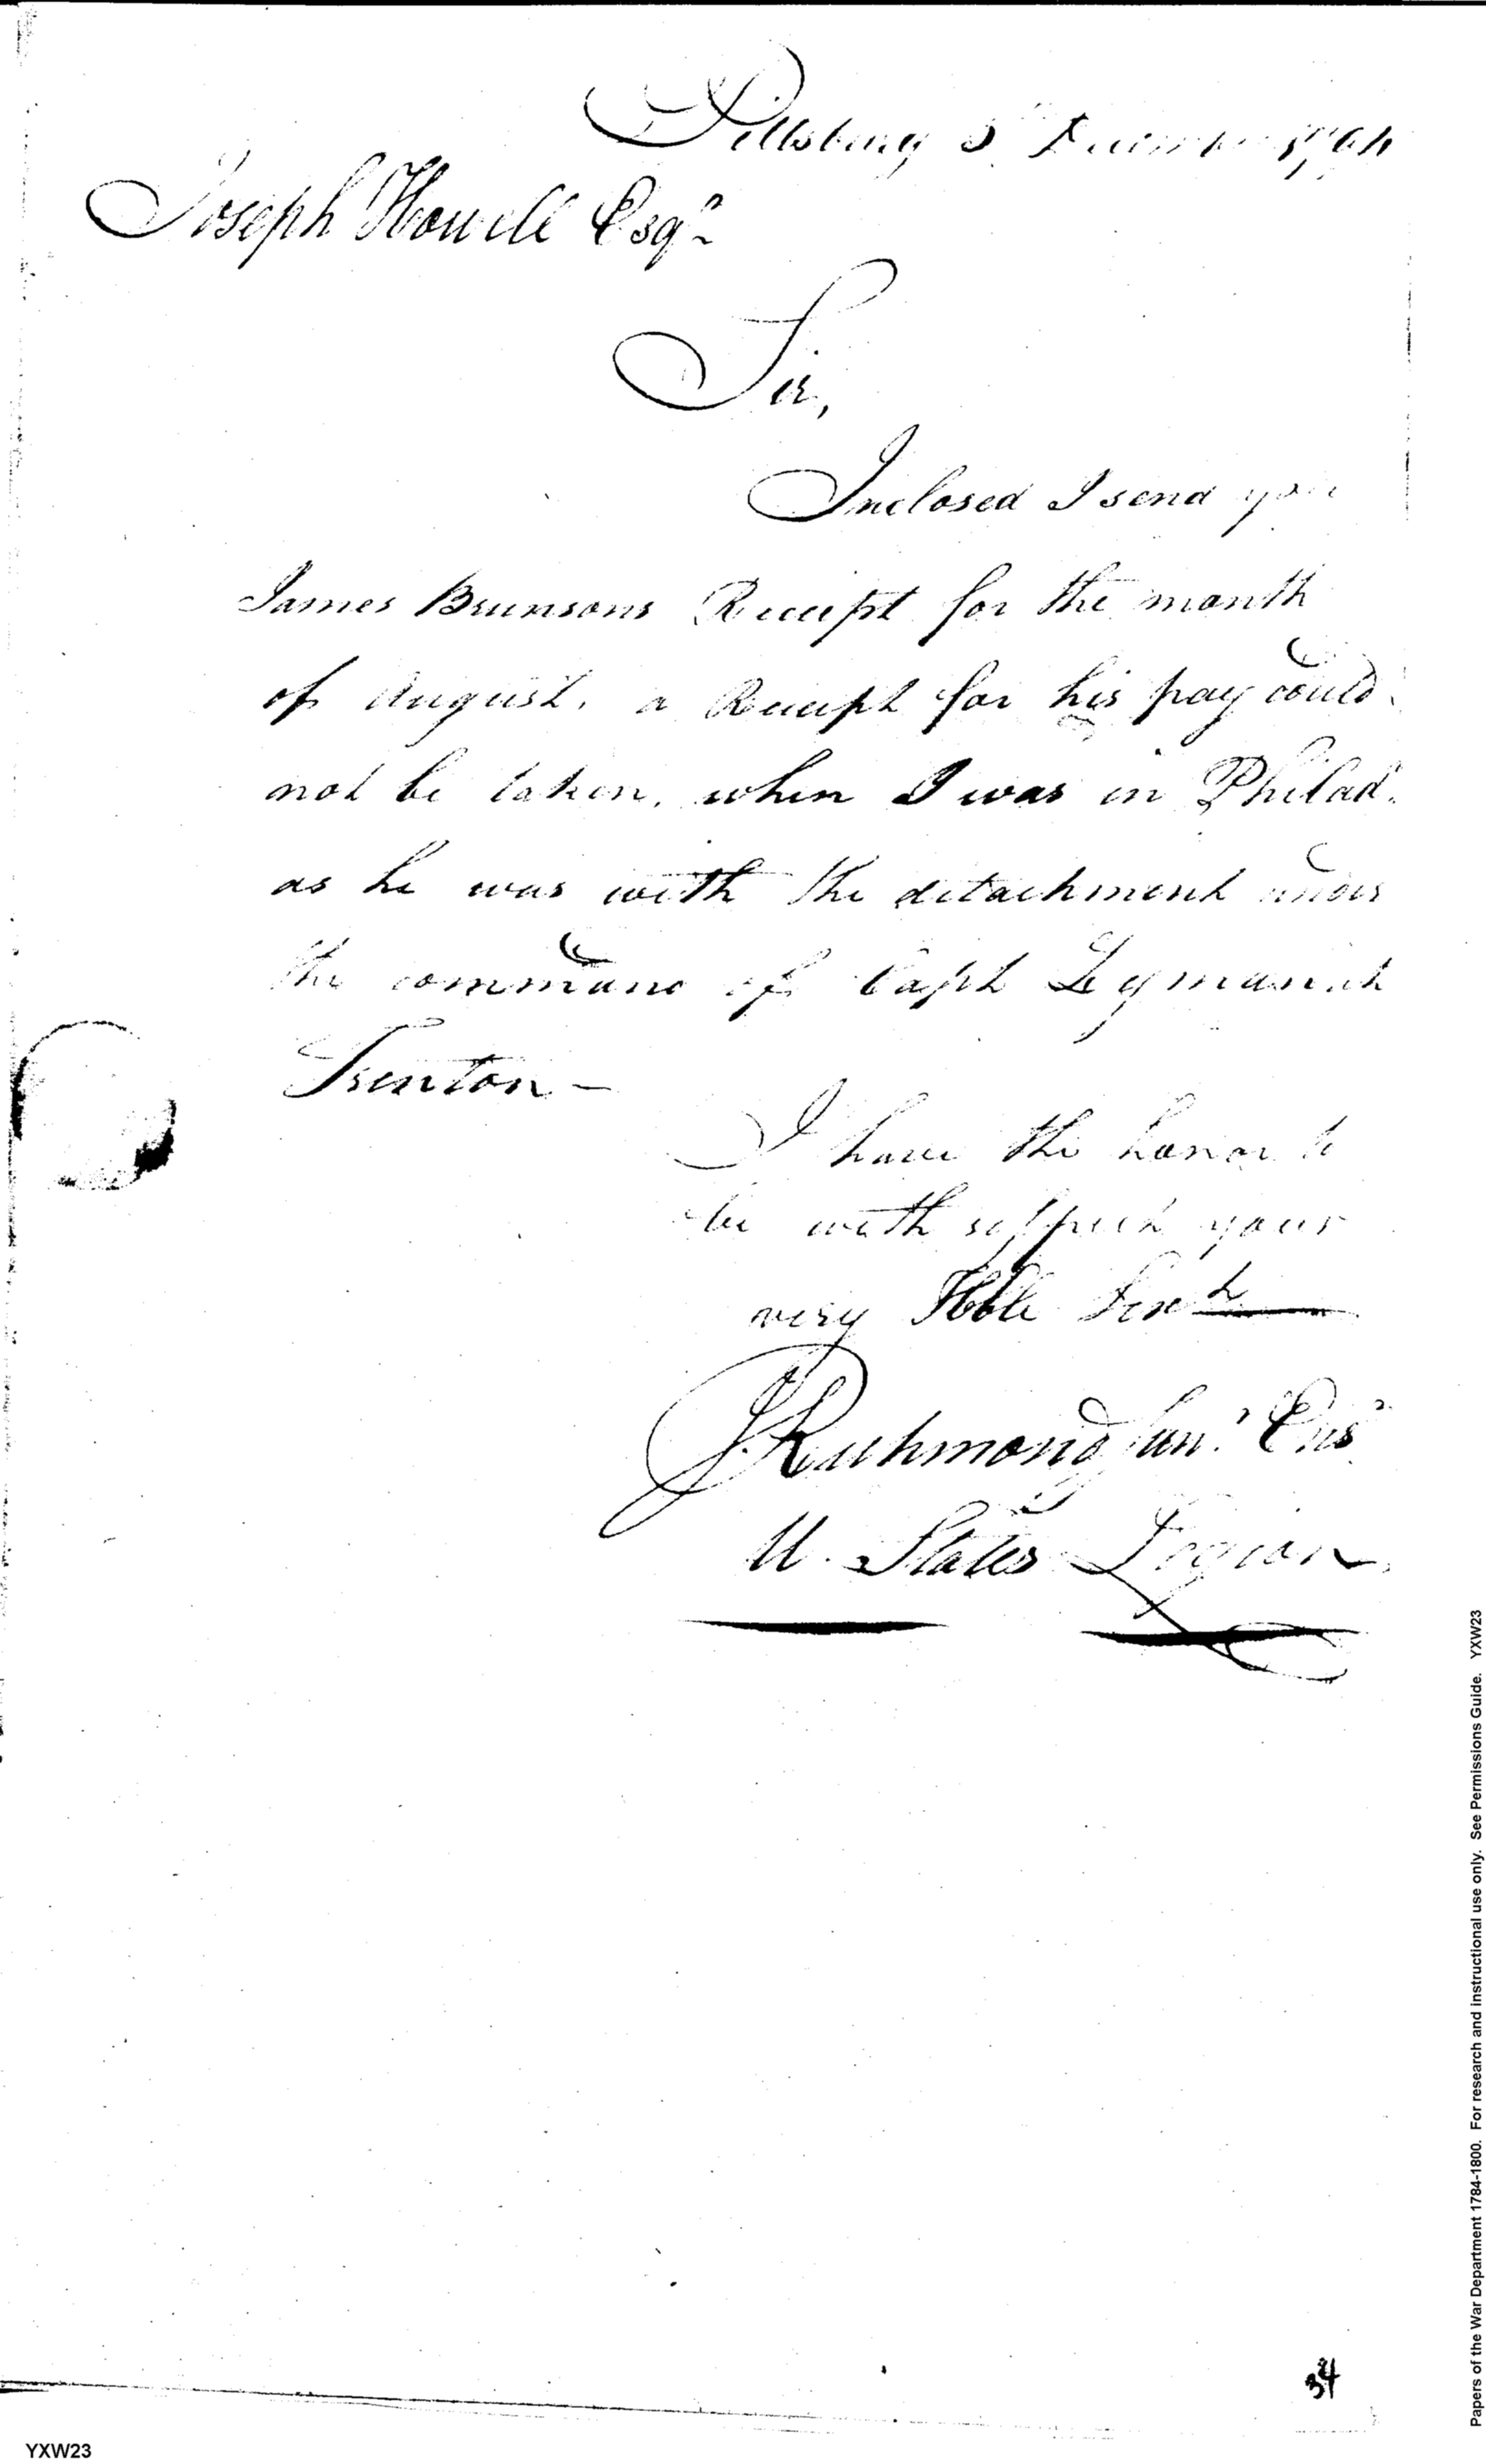 Pittsburg 5 December 1794
Joseph Howell Esqr
Sir,
Inclosed I send you
James Brunsons Receipt for the month
of August, a Receipt for his pay could
not be taken, when I was in Philad.
as he was with the detachment under
the command of Capt Lyman at
Trenton —
I have the honor to
be with respect your
very Hble Servt
J. Richmond Junr. Ens
U. States Legion
34
YXW23
Papers of the War Department 1784-1800. For research and instructional use only. See Permissions Guide. YXW23